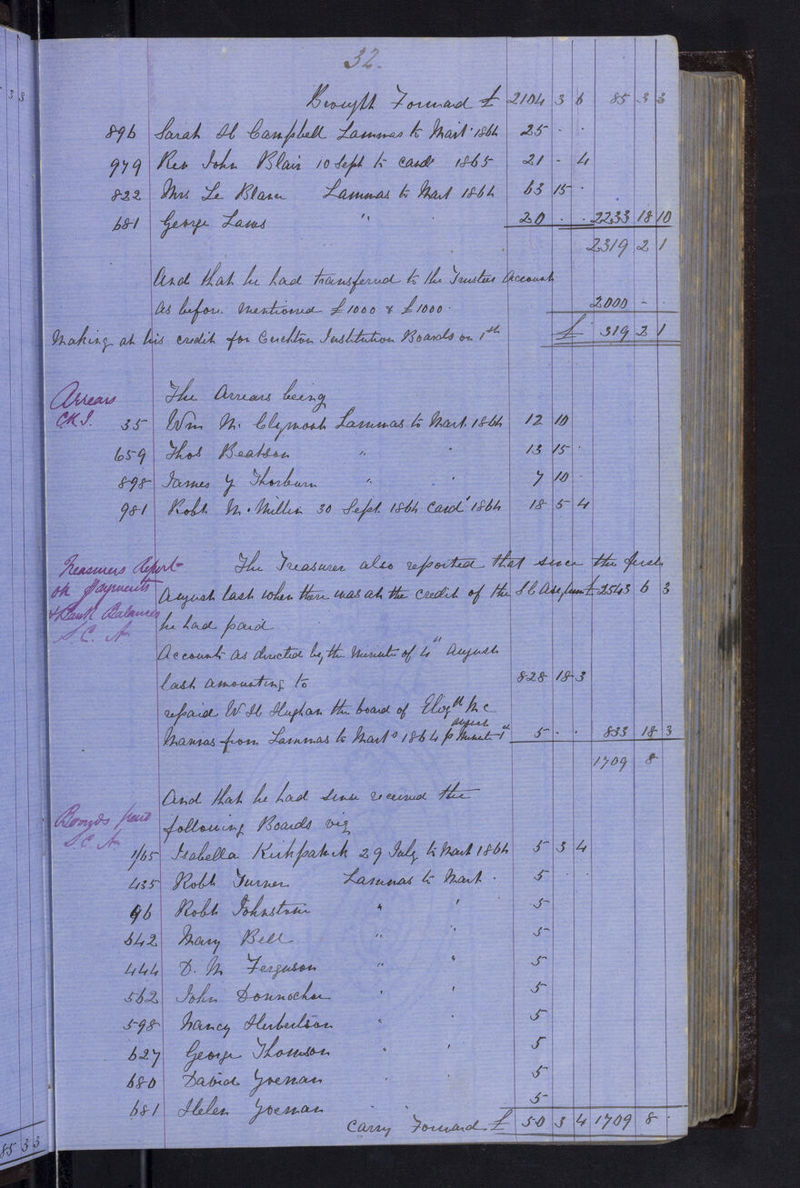 32.
Brought Forward £ 2104 3 6 85 3 3
896 Sarah H Campbell Lammas to Mart 1864 25 · ·
979 Rev John Blair 10 Sept to cand 1865 21 - 4
822 Mrs Le Blanc Lammas to Mart 1864 63 15 ·
681 George Laws " 20 · · 2233 18 10
2319 2 1
And that he had transferred to the Trustees Account
as before mentioned £1000 & £1000 2000 - -
Making at his credit for Crichton Institution Boards on 1st £ 319 2 1
Arrears
C.R.I.
The Arrears being
35 Wm Mc Clymont Lammas to Mart 1864 12 10
659 Thos Beatson " " 13 15 ·
898 James Y Thorburn " " 7 10 ·
981 Robt Mc Millan 30 Sept 1864 cand 1864 18 5 4
Treasurers Report
on payments
& Bank Balances
S. C. A
The Treasurer also reported that since the first
August last when there was at the credit of the S C Asylum £ 2543 6 3
he had paid
Accounts as directed by the Minute of 4th August
last amounting to 828 18 3
repaid W H Hughan the board of Elizth Mc
Manus from Lammas to Marts 1864 p Minute 1st August 5 · · 833 18 3
1709 8
And that he had since received the
following Boards viz
Boards paid
S. C. A
1/65 Isabella Kirkpatrick 29 July to Mart 1864 5 3 4
435 Robt Turner Lammas to Mart · 5 · ·
96 Robt Johnstone " " 5
642 Mary Bell " " 5
444 D. M Ferguson " " 5
562 John Donnochie " " 5
598 Nancy Herbertson " " 5
627 George Thomson " " 5
680 David Yoeman · · 5
681 Helen Yoeman · · 5
Carry Forward £ 50 3 4 1709 8 ·
3 3
85 3 3